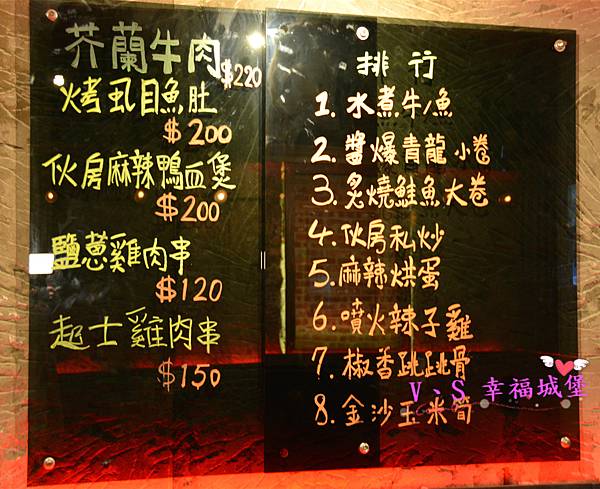 芥蘭牛肉
$220
烤虱目魚肚
$200
伙房麻辣鴨血煲
$200
鹽蔥雞肉串
$120
起士雞肉串
$150
排行
1. 水煮牛/魚
2. 醬爆青龍小卷
3. 炙燒鮭魚大卷
4. 伙房私炒
5. 麻辣烘蛋
6. 噴火辣子雞
7. 椒香跳跳骨
8. 金沙玉米筍
V、S 幸福城堡